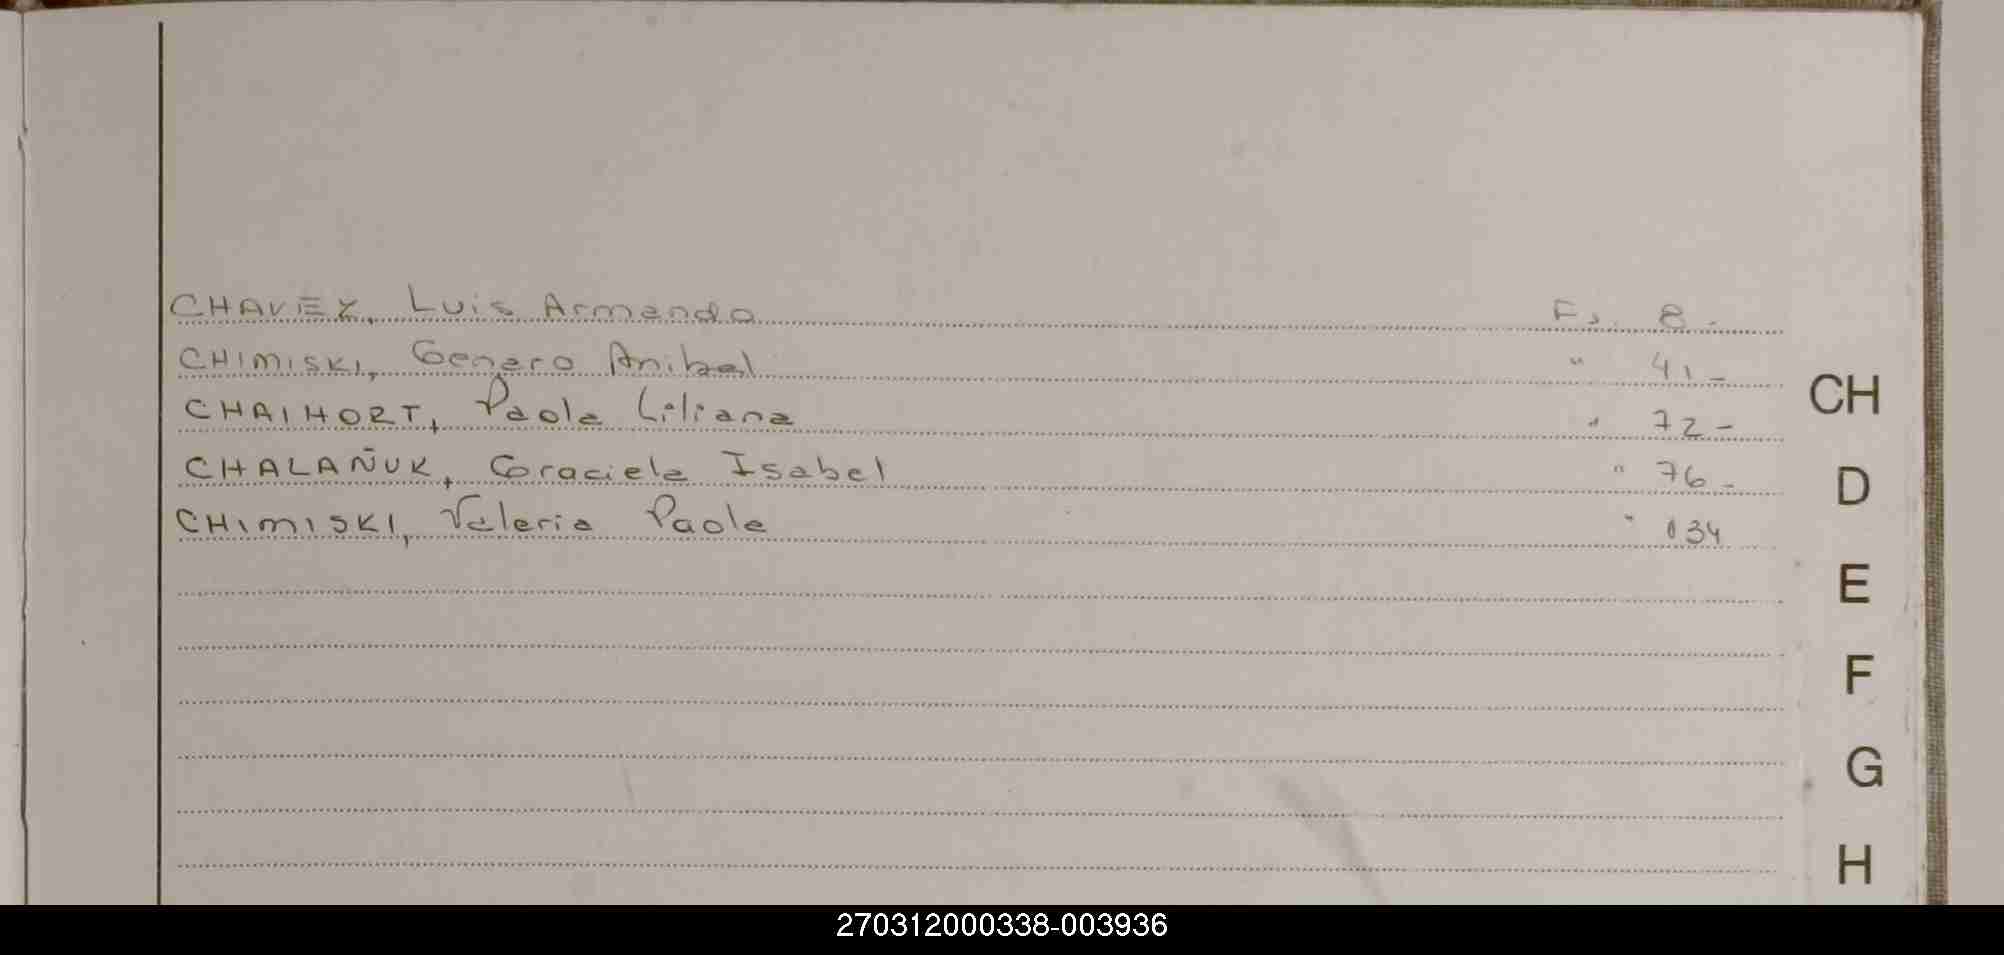 CHAVEZ, Luis Armando Fs. 8.-
CHIMISKI, Genaro Anibal " 41-
CHAIHORT, Paola Liliana " 72-
CHALAÑUK, Graciela Isabel " 76-
CHIMISKI, Valeria Paola " 134
CH
D
E
F
G
H
270312000338-003936